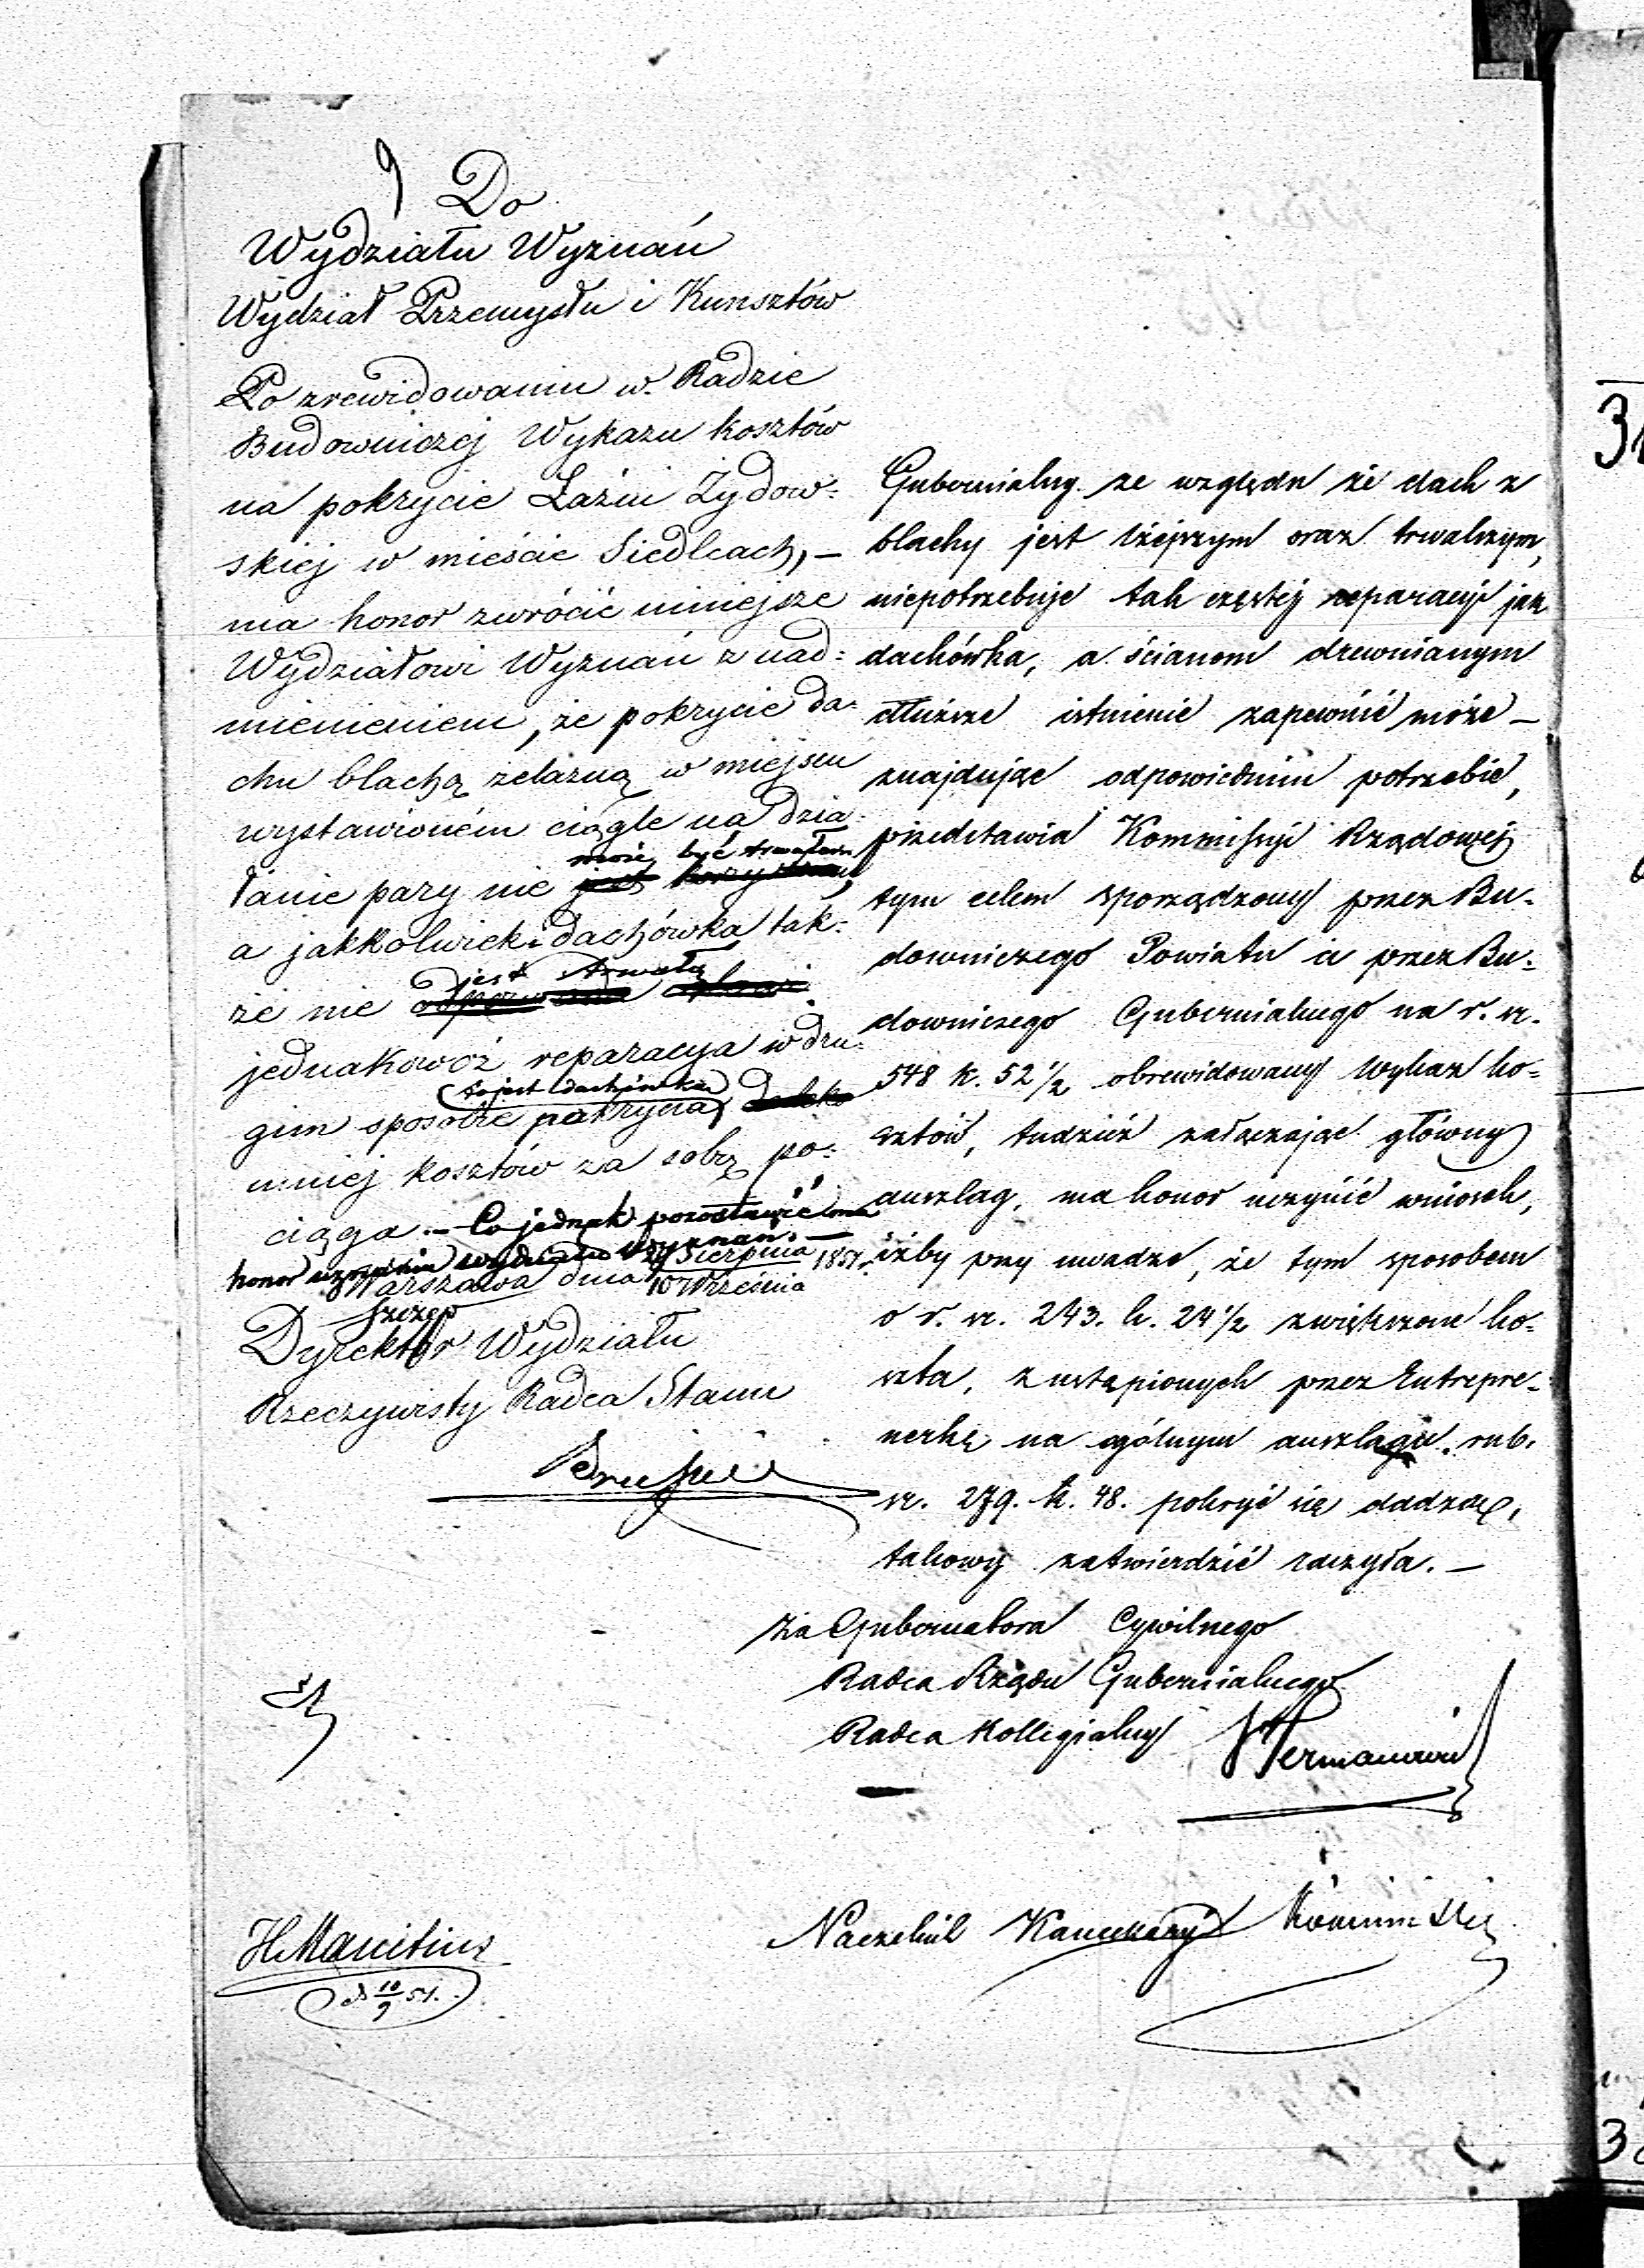 9 Do
Wydziału Wyznań
Wydział Przemysłu i Kunsztów
Po zrewidowaniu w Radzie
Budowniczej Wykazu kosztów
na pokrycie Łaźni Żydow=
skiej w mieście Siedlcach, —
ma honor zwrócić niniejsze
Wydziałowi Wyznań z nad=
mienieniem, że pokrycie da=
chu blachą żelazną w miejscu
wystawioném ciągle na dzia=
może być trwałem
łanie pary nie jest
a jakkolwiek dachówka tak=
jest trwałą
że nie
jednakowoż reparacya w dru=
to jest dachówką
gim sposobie pokrycia,
mniej kosztów za sobą po=
ciąga. — Co jednak pozostawić ma
honor uznaniu Wydziału Wyznań. —
Warszawa dnia 29 Sierpnia 1851 r.
10 Września
Dyrektor Wydziału
Rzeczywisty Radca Stanu
H Mauritius
d 10/9 51.
Gubernialny. ze względu że dach z
blachy jest lżejszym oraz trwalszym,
niepotrzebuje tak częstéj reparacyi jak
dachówka, a ścianom drewnianym
dłuższe istnienie zapewnić może —
znajdując odpowiedniém potrzebie,
przedstawia Kommissyi Rządowej
tym celem sporządzony przez Bu=
downiczego Powiatu a przez Bu=
downiczego Gubernialnego na r. sr.
548 k. 52 1/2 obrewidowany Wykaz ko=
sztów, tudzież załączając główny
anszlag, ma honor uczynić wniosek,
iżby przy uwadze, że tym sposobem
o r. sr. 243. k. 24 1/2 zwiększone ko=
szta, z ustąpionych przez Entrepre=
nerkę na ogólnym anszlagu rub.
sr. 279. k. 48. pokryć się dadzą,
takowy zatwierdzić raczyła. —
Za Gubernatora Cywilnego
Radca Rządu Gubernialnego
Radca Kollegialny
Naczelnik Kancellaryi